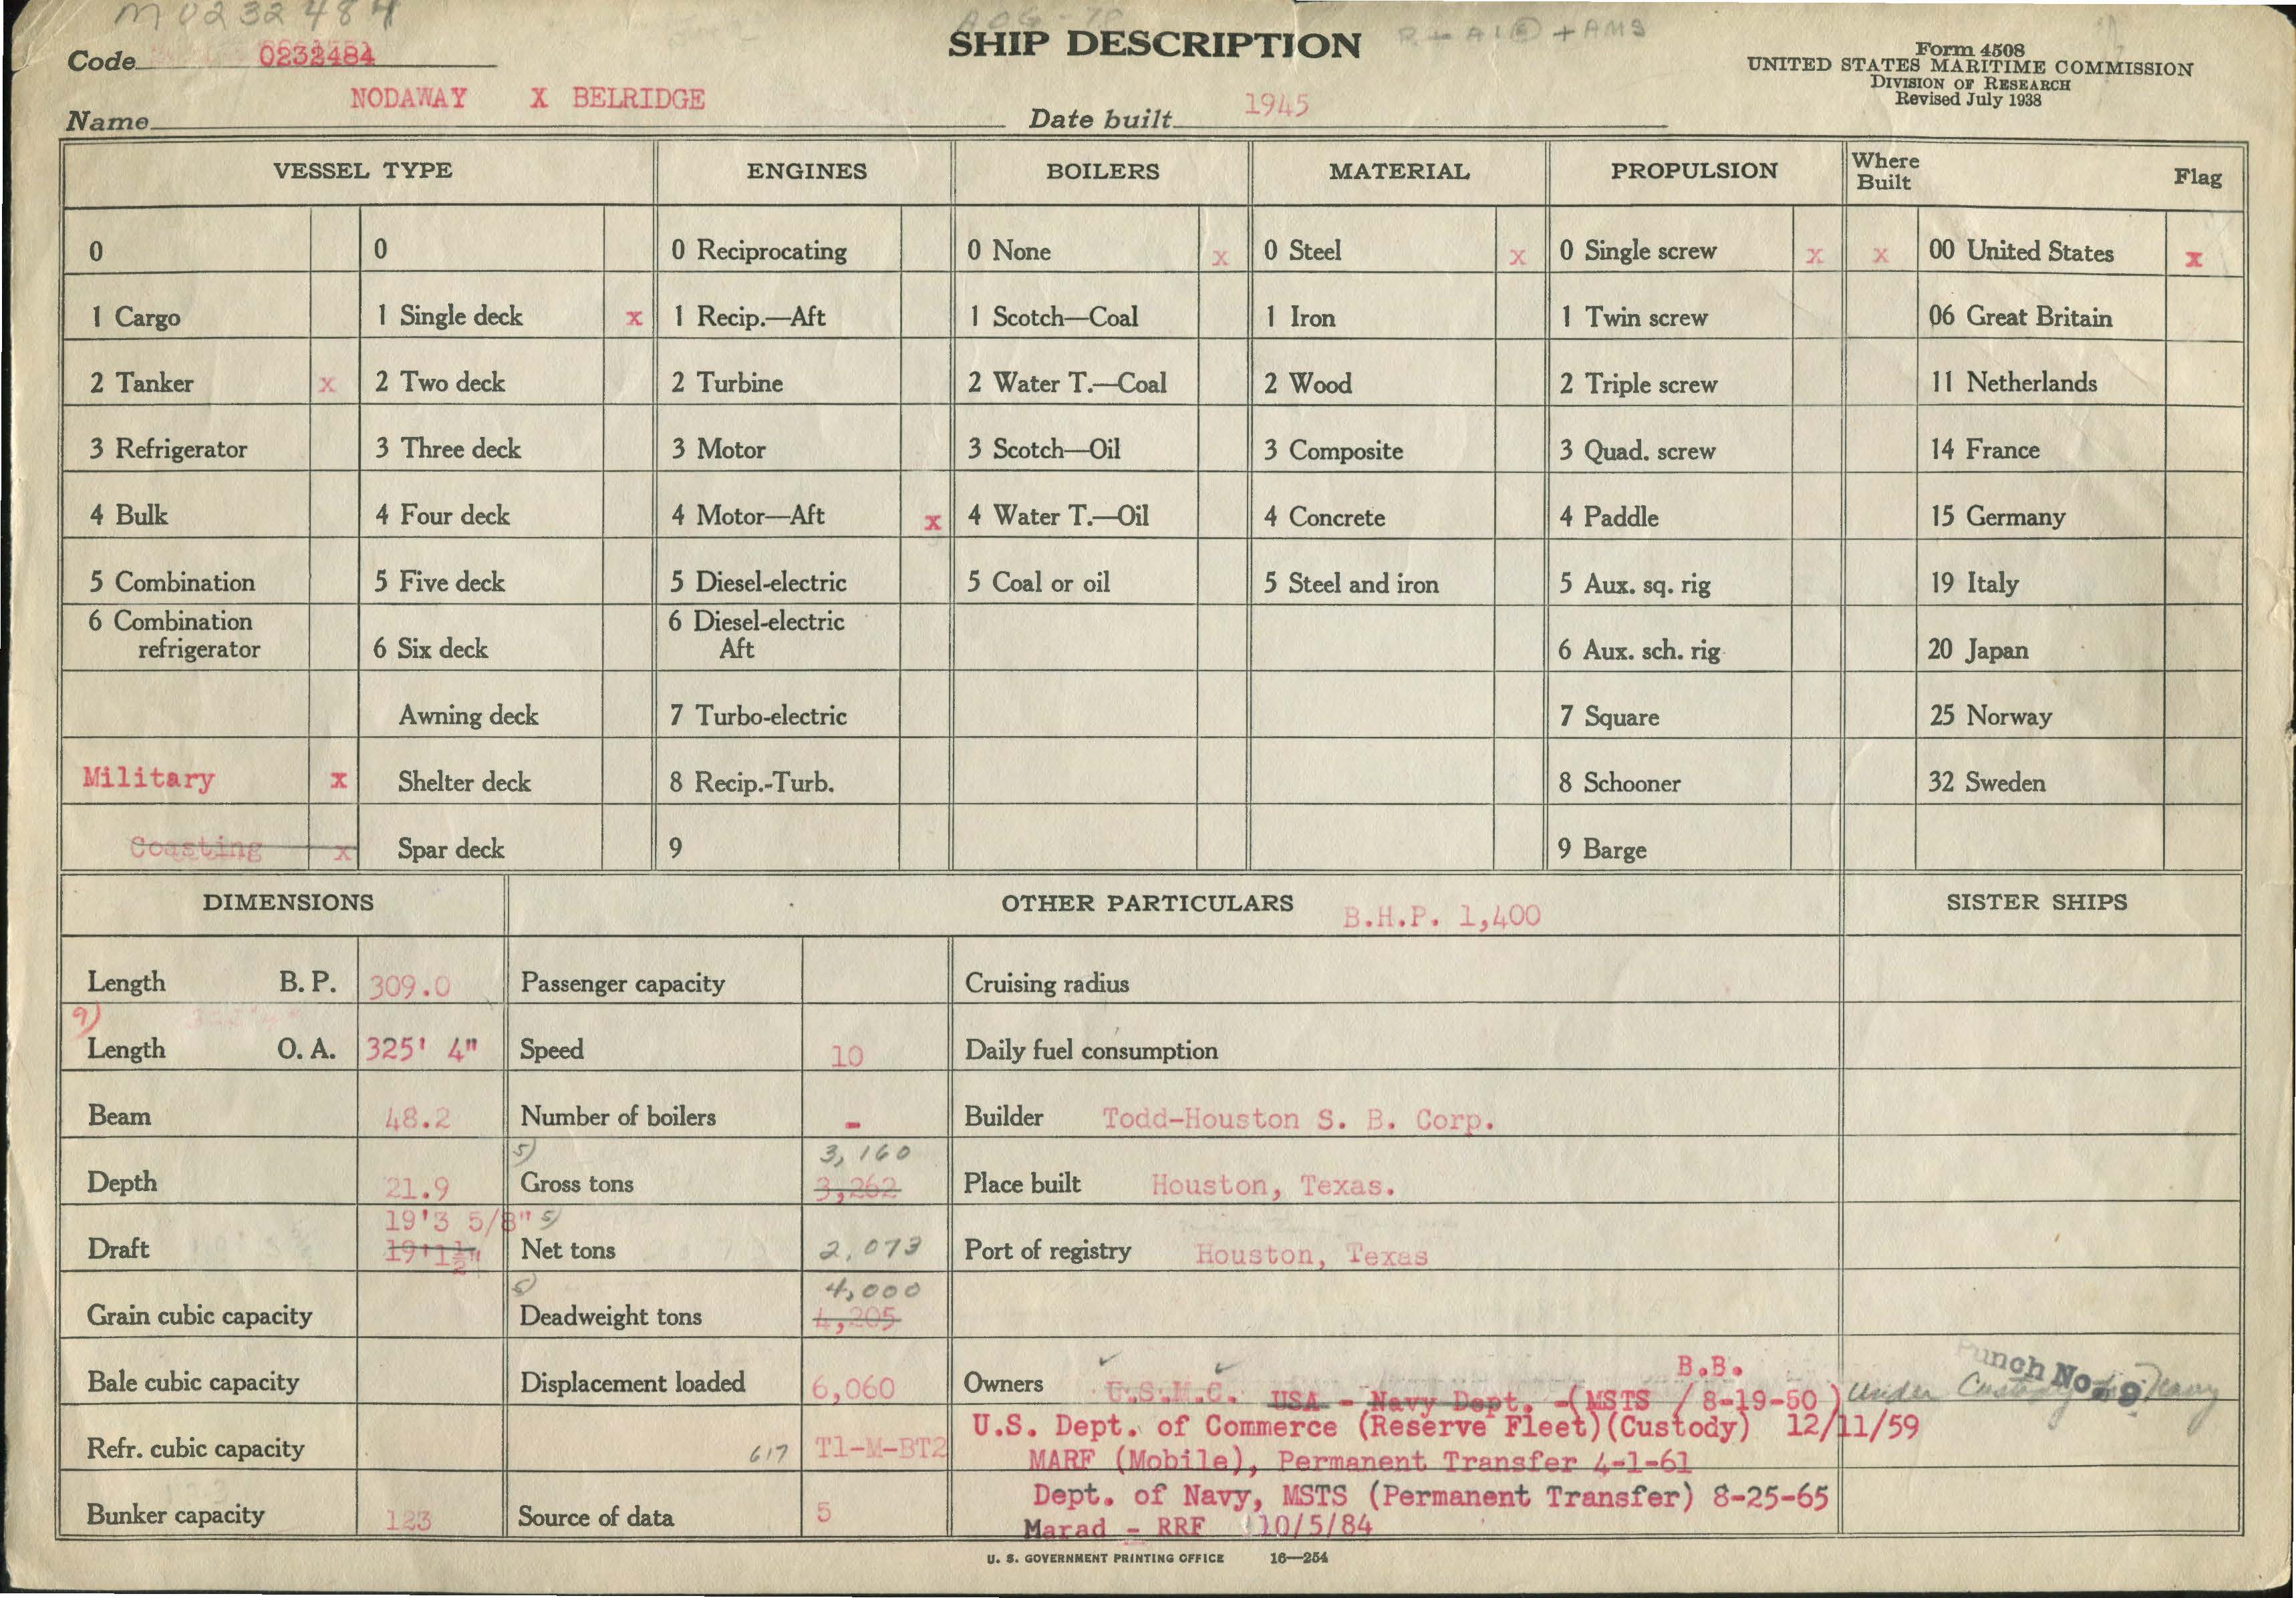 M0232484
AOG-78
R-A1Ⓔ+AMS
Code 0232484
SHIP DESCRIPTION
Form 4508
UNITED STATES MARITIME COMMISSION
DIVISION OF RESEARCH
Revised July 1938
Name NODAWAY X BELRIDGE
Date built 1945
VESSEL TYPE ENGINES BOILERS MATERIAL PROPULSION Where Built Flag
0 0 0 Reciprocating 0 None x 0 Steel x 0 Single screw x x 00 United States x
1 Cargo 1 Single deck x 1 Recip.—Aft 1 Scotch—Coal 1 Iron 1 Twin screw 06 Great Britain
2 Tanker x 2 Two deck 2 Turbine 2 Water T.—Coal 2 Wood 2 Triple screw 11 Netherlands
3 Refrigerator 3 Three deck 3 Motor 3 Scotch—Oil 3 Composite 3 Quad. screw 14 France
4 Bulk 4 Four deck 4 Motor—Aft x 4 Water T.—Oil 4 Concrete 4 Paddle 15 Germany
5 Combination 5 Five deck 5 Diesel-electric 5 Coal or oil 5 Steel and iron 5 Aux. sq. rig 19 Italy
6 Combination refrigerator 6 Six deck 6 Diesel-electric Aft 6 Aux. sch. rig 20 Japan
Awning deck 7 Turbo-electric 7 Square 25 Norway
Military x Shelter deck 8 Recip.-Turb. 8 Schooner 32 Sweden
Coasting x Spar deck 9 9 Barge
DIMENSIONS OTHER PARTICULARS B.H.P. 1,400 SISTER SHIPS
Length B. P. 309.0 Passenger capacity Cruising radius
9)
Length O. A. 325' 4" Speed 10 Daily fuel consumption
Beam 48.2 Number of boilers - Builder Todd-Houston S. B. Corp.
5) 3,160
Depth 21.9 Gross tons 3,262 Place built Houston, Texas.
19'3 5/8" 5)
Draft 19'1½" Net tons 2,073 Port of registry Houston, Texas
4,000
Grain cubic capacity Deadweight tons 4,205
B.B.
Punch No. 9
Bale cubic capacity Displacement loaded 6,060 Owners U.S.M.C. USA - Navy Dept. -(MSTS / 8-19-50) under Custody Navy
U.S. Dept. of Commerce (Reserve Fleet)(Custody) 12/11/59
Refr. cubic capacity 617 T1-M-BT2 MARF (Mobile), Permanent Transfer 4-1-61
Dept. of Navy, MSTS (Permanent Transfer) 8-25-65
Bunker capacity 123 Source of data 5 Marad - RRF 10/5/84
U. S. GOVERNMENT PRINTING OFFICE 16—254